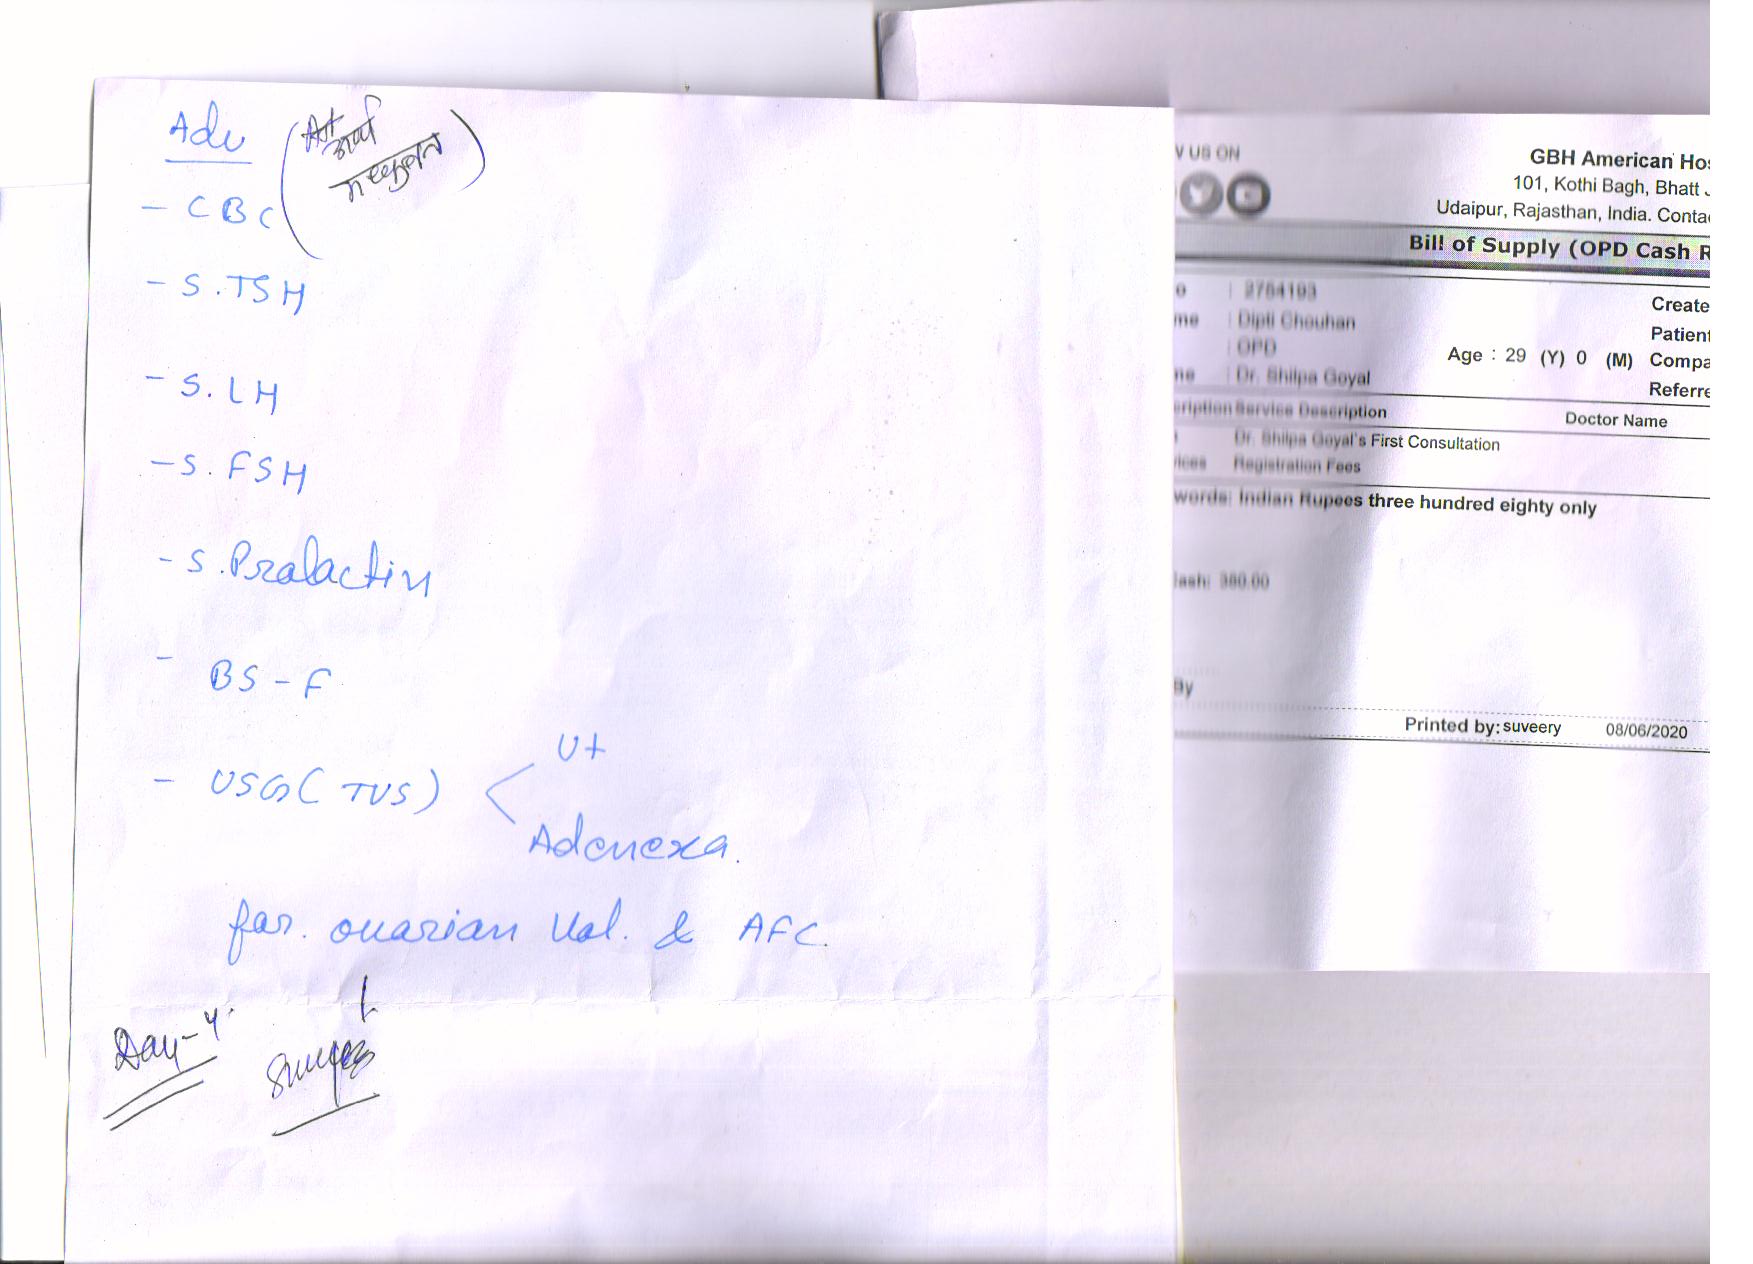 Adv
- CBC
- S.TSH
- S.LH
- S.FSH
- S.Prolactin
- BS-F
- USG (TVS) < Ut
Adenexa.
for. ovarian Vol. & AFC.
Day-4.
V US ON
GBH American Hos
101, Kothi Bagh, Bhatt J
Udaipur, Rajasthan, India. Conta
Bill of Supply (OPD Cash R
o : 2764193
Create
me : Dipti Chouhan
Patient
: OPD
Age : 29 (Y) 0 (M) Compa
me : Dr. Shilpa Goyal
Referre
cription Service Description Doctor Name
Dr. Shilpa Goyal's First Consultation
vices Registration Fees
words: Indian Rupees three hundred eighty only
Cash: 380.00
By
Printed by: suveery 08/06/2020